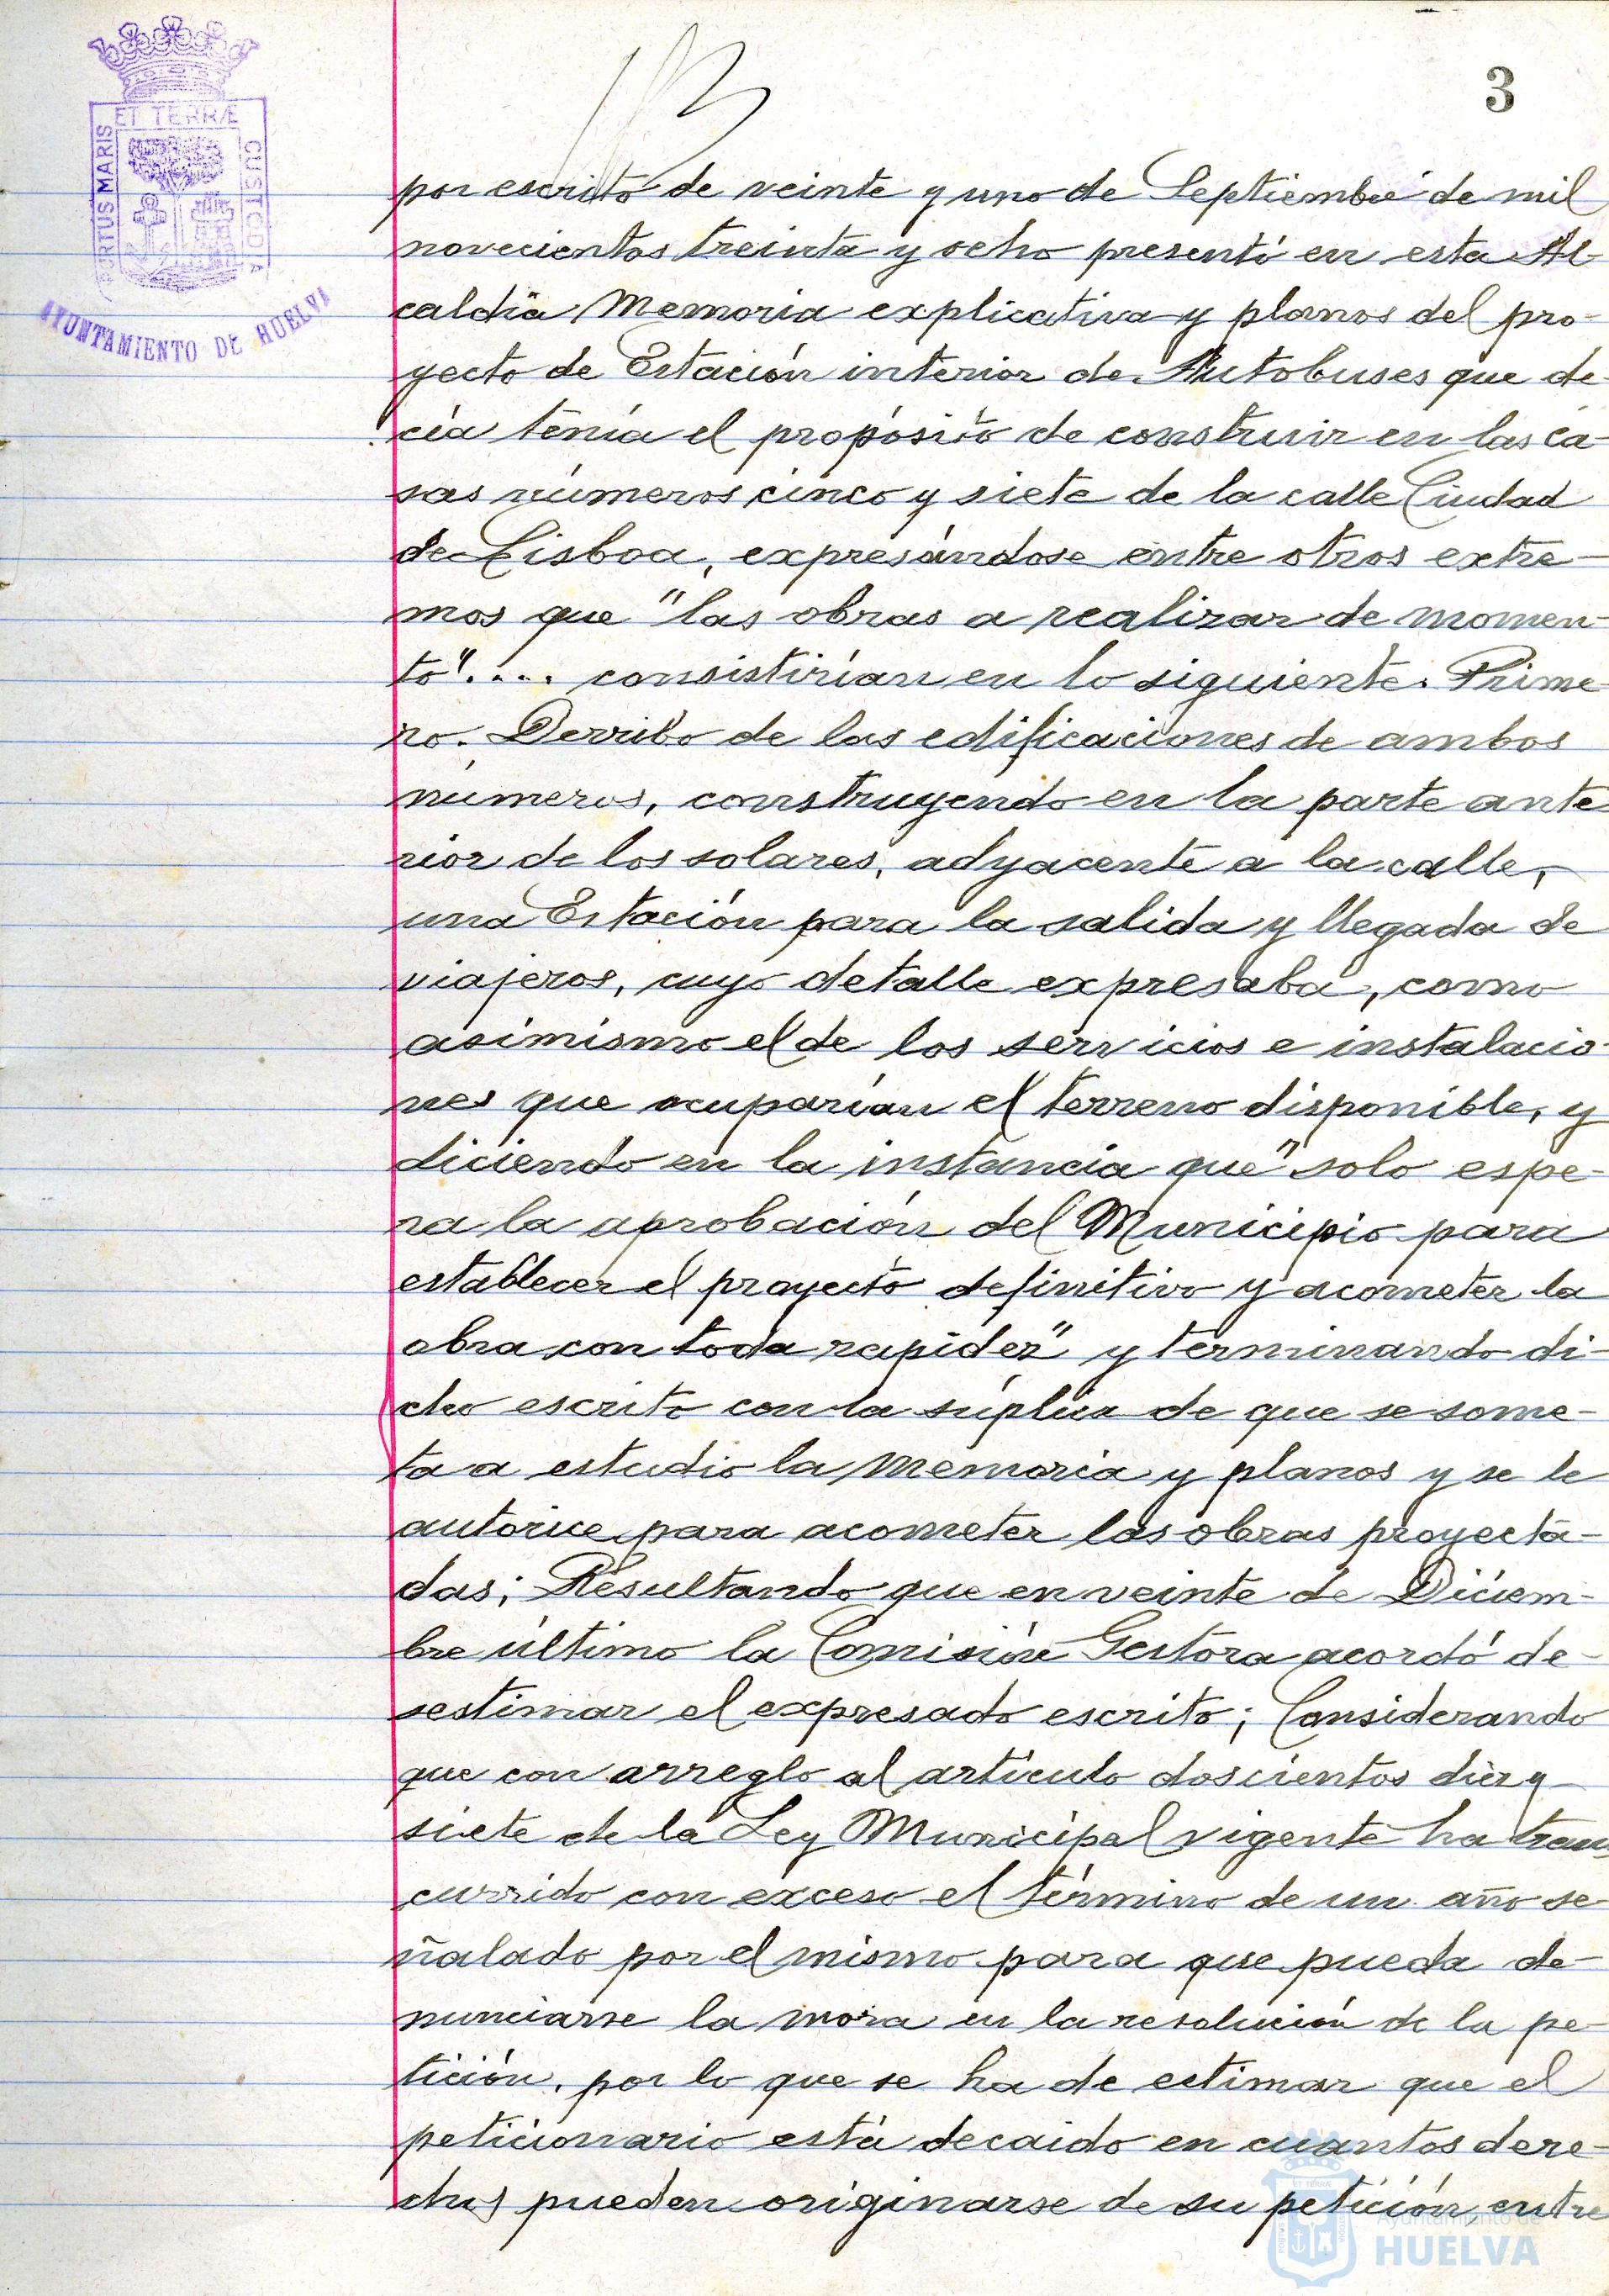 3
ET TERRÆ
PORTUS MARIS
CUSTODIA
AYUNTAMIENTO DE HUELVA
por escrito de veinte y uno de Septiembre de mil
novecientos treinta y ocho presentó en esta Al-
caldía Memoria explicativa y planos del pro-
yecto de Estación interior de Autobuses que de-
cía tenía el propósito de construir en las ca-
sas números cinco y siete de la calle Ciudad
de Lisboa, expresándose entre otros extre-
mos que "las obras a realizar de momen-
to".... consistirían en lo siguiente. Prime-
ro. Derribo de las edificaciones de ambos
números, construyendo en la parte ante-
rior de los solares, adyacente a la calle,
una Estación para la salida y llegada de
viajeros, cuyo detalle expresaba, como
asimismo el de los servicios e instalacio-
nes que ocuparían el terreno disponible, y
diciendo en la instancia que "solo espe-
ra la aprobación del Municipio para
establecer el proyecto definitivo y acometer la
obra con toda rapidez" y terminando di-
cho escrito con la súplica de que se some-
ta a estudio la memoria y planos y se le
autorice para acometer las obras proyecta-
das; Resultando que en veinte de Diciem-
bre último la Comisión Gestora acordó de-
sestimar el expresado escrito; Considerando
que con arreglo al artículo doscientos diez y
siete de la Ley Municipal vigente ha trans
currido con exceso el término de un año se-
ñalado por el mismo para que pueda de-
nunciarse la mora en la resolución de la pe-
tición, por lo que se ha de estimar que el
peticionario está decaido en cuantos dere-
chos pueden originarse de su petición, entre
Ayuntamiento de
HUELVA